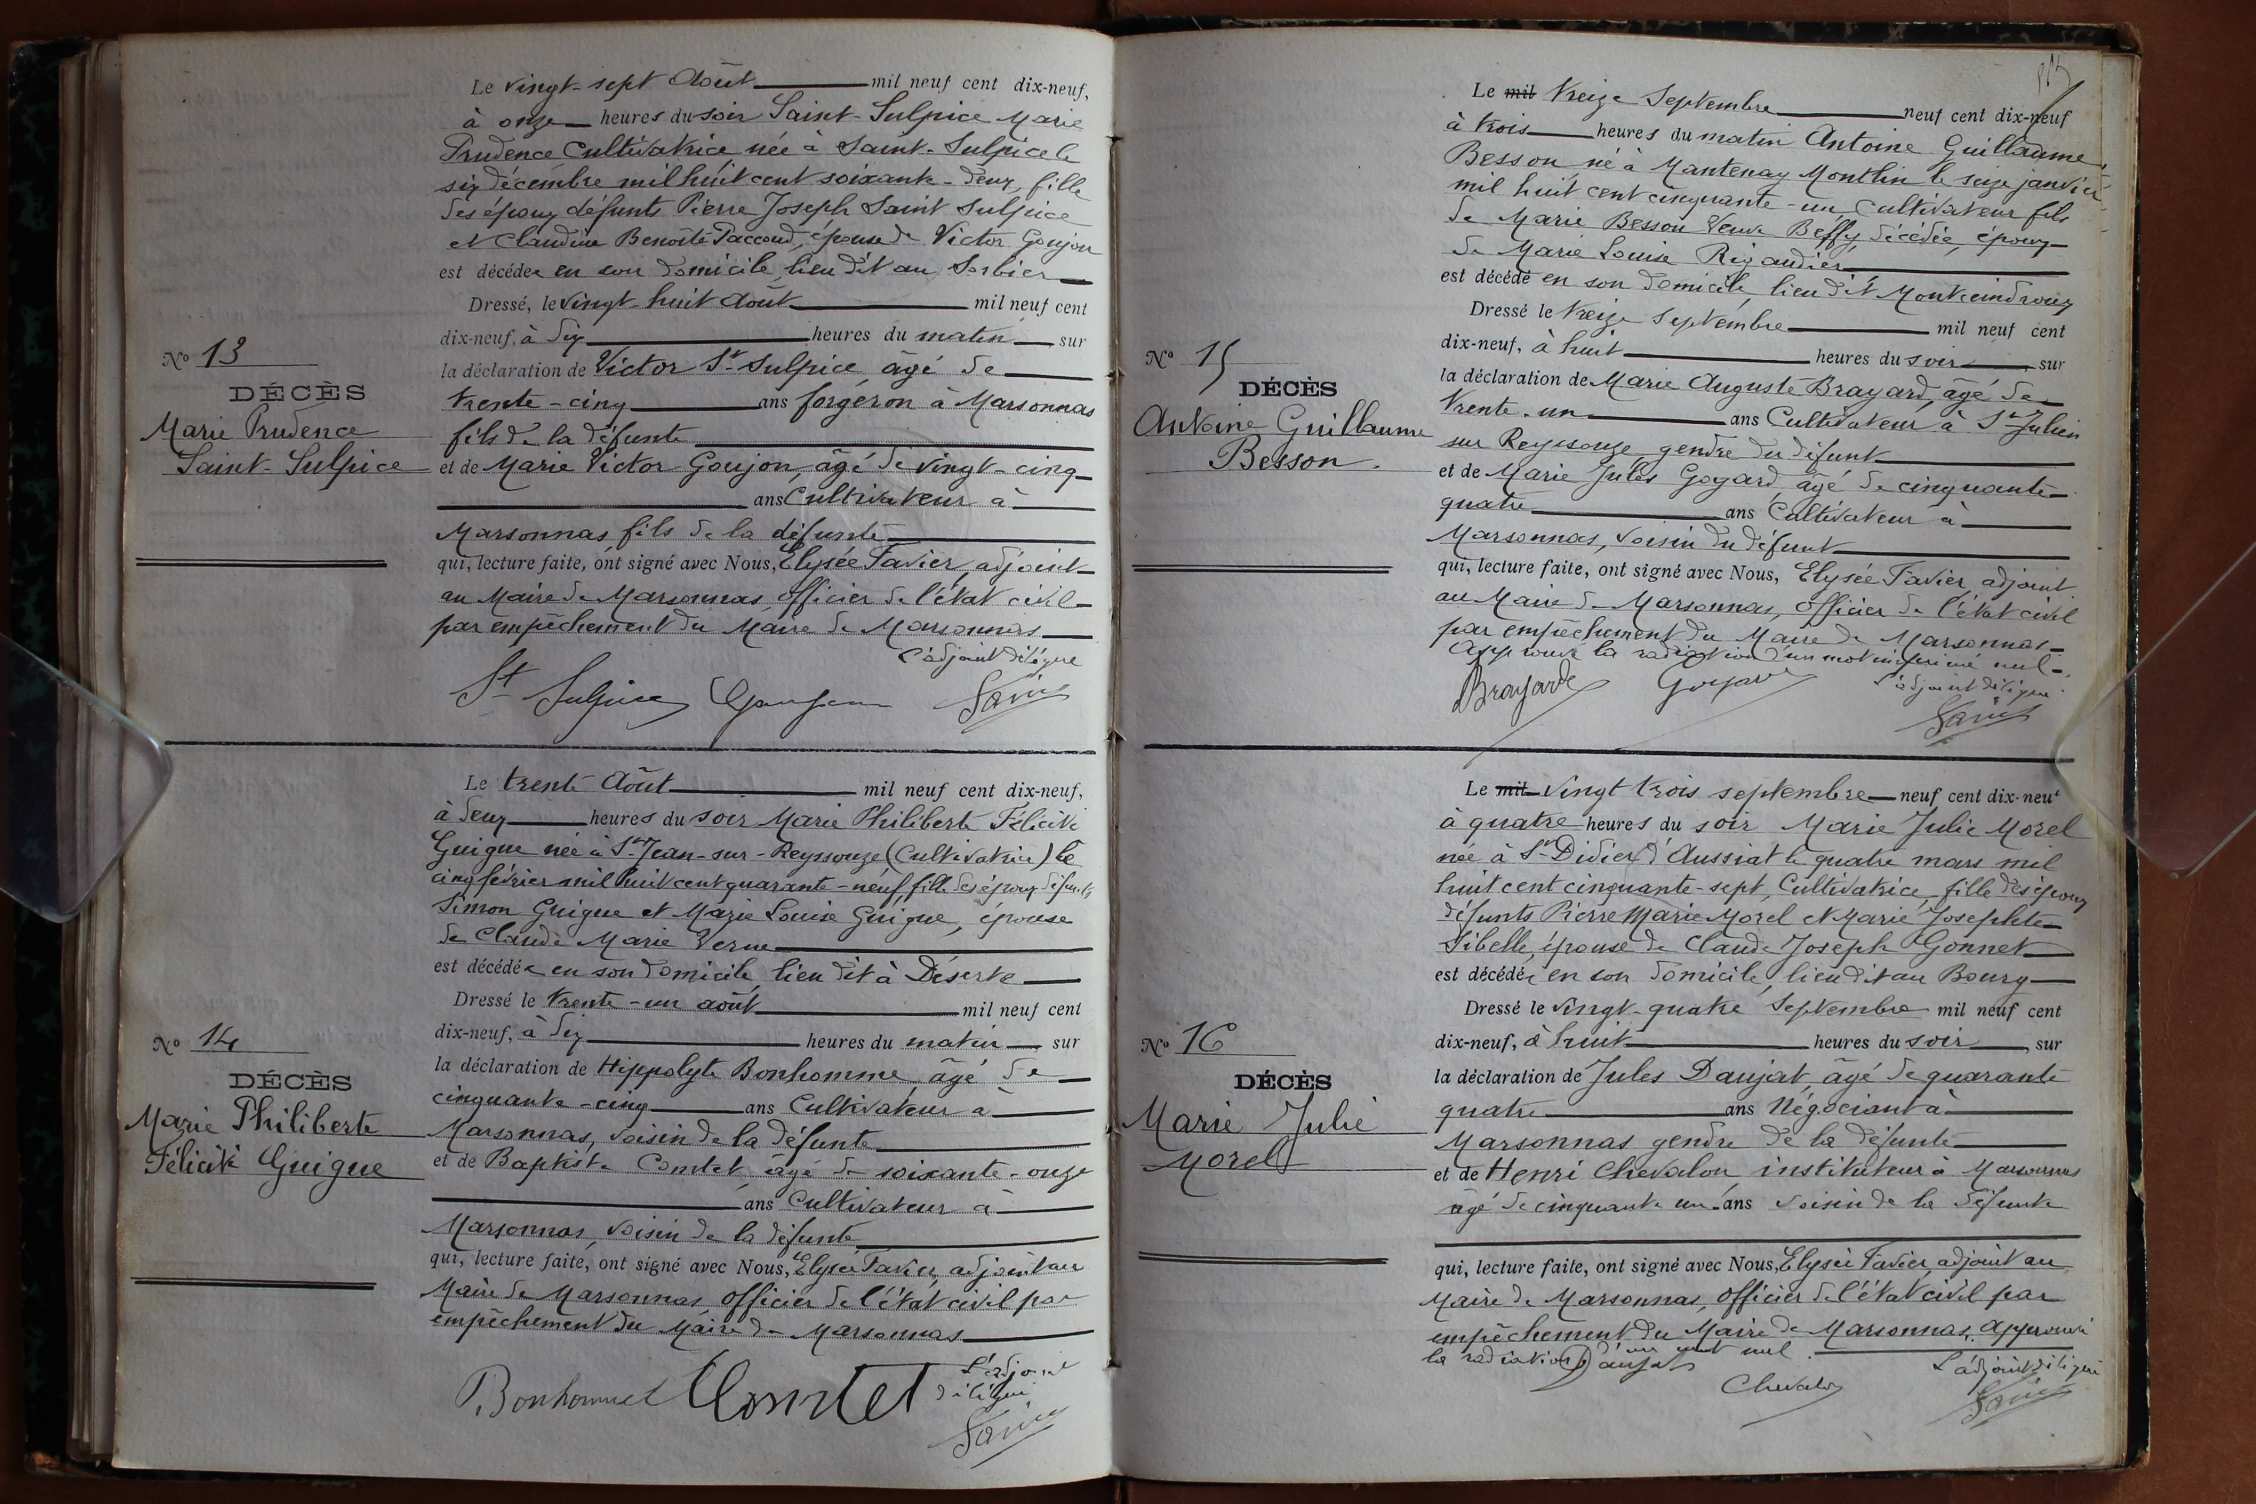 Le vingt-sept Août mil neuf cent dix-neuf,
à onze heures du soir Saint-Sulpice Marie
Prudence Cultivatrice née à Saint-Sulpice le
six décembre mil huit cent soixante-deux, fille
des époux défunts Pierre Joseph Saint Sulpice
et Claudine Benoîte Paccoud, épouse de Victor Goujon
est décédée en son domicile, lieu dit au Sorbier
Dressé, le vingt-huit Août mil neuf cent
dix-neuf, à dix heures du matin sur
la déclaration de Victor St Sulpice, âgé de
trente-cinq ans forgeron à Marsonnas
fils de la défunte
et de Marie Victor Goujon, âgé de vingt-cinq
ans Cultivateur à
Marsonnas fils de la défunte
qui, lecture faite, ont signé avec Nous, Elysée Favier, adjoint
au Maire de Marsonnas, officier de l'état civil
par empêchement du Maire de Marsonnas
L'adjoint délégué
St Sulpice Goujon Favier
No 13
DÉCÈS
Marie Prudence
Saint-Sulpice
Le trente Août mil neuf cent dix-neuf,
à deux heures du soir Marie Philiberte Félicité
Guigue née à St Jean-sur-Reyssouze (Cultivatrice) le
cinq février mil huit cent quarante-neuf, fille des époux défunts
Simon Guigue et Marie Louise Guigue, épouse
de Claude Marie Verne
est décédée en son domicile, lieu dit à Déserte
Dressé le trente-un août mil neuf cent
dix-neuf, à dix heures du matin sur
la déclaration de Hippolyte Bonhomme, âgé de
cinquante-cinq ans Cultivateur à
Marsonnas, voisin de la défunte
et de Baptiste Comtet, âgé de soixante-onze
ans Cultivateur à
Marsonnas, voisin de la défunte
qui, lecture faite, ont signé avec Nous, Elysée Favier, adjoint au
Maire de Marsonnas, officier de l'état civil par
empêchement du Maire de Marsonnas
L'adjoint
délégué
Bonhomme Comtet Favier
No 14
DÉCÈS
Marie Philiberte
Félicité Guigue
Le mil treize Septembre neuf cent dix-neuf
à trois heures du matin Antoine Guillaume
Besson, né à Mantenay Montlin le seize janvier
mil huit cent cinquante-un, cultivateur fils
de Marie Besson Veuve Beffy, décédée, époux
de Marie Louise Rigaudier
est décédé en son domicile, lieu dit Montceindroux
Dressé le treize Septembre mil neuf cent
dix-neuf, à huit heures du soir, sur
la déclaration de Marie Auguste Brayard, âgé de
trente-un ans Cultivateur à St Julien
sur Reyssouze, gendre du défunt
et de Marie Jules Goyard, âgé de cinquante-
quatre ans Cultivateur à
Marsonnas, voisin du défunt
qui, lecture faite, ont signé avec Nous, Elysée Favier, adjoint
au Maire de Marsonnas, officier de l'état civil
par empêchement du Maire de Marsonnas
Approuvé la radiation d'un mot imprimé nul
L'adjoint délégué
Brayard Goyard Favier
No 15
DÉCÈS
Antoine Guillaume
Besson.
Le mil vingt trois septembre neuf cent dix-neuf
à quatre heures du soir Marie Julie Morel
née à St Didier d'Aussiat le quatre mars mil
huit cent cinquante-sept, Cultivatrice, fille des époux
défunts Pierre Marie Morel et Marie Josephte
Sibelle, épouse de Claude Joseph Gonnet
est décédée en son domicile, lieu dit au Bourg
Dressé le vingt-quatre Septembre mil neuf cent
dix-neuf, à huit heures du soir, sur
la déclaration de Jules Daujat, âgé de quarante
quatre ans Négociant à
Marsonnas gendre de la défunte
et de Henri Chevalon, instituteur à Marsonnas
âgé de cinquante un ans voisin de la défunte
qui, lecture faite, ont signé avec Nous, Elysée Favier, adjoint au
Maire de Marsonnas, officier de l'état civil par
empêchement du Maire de Marsonnas. Approuvé
la radiation d'un mot nul.
L'adjoint délégué
Daujat Chevalon Favier
No 16
DÉCÈS
Marie Julie
Morel